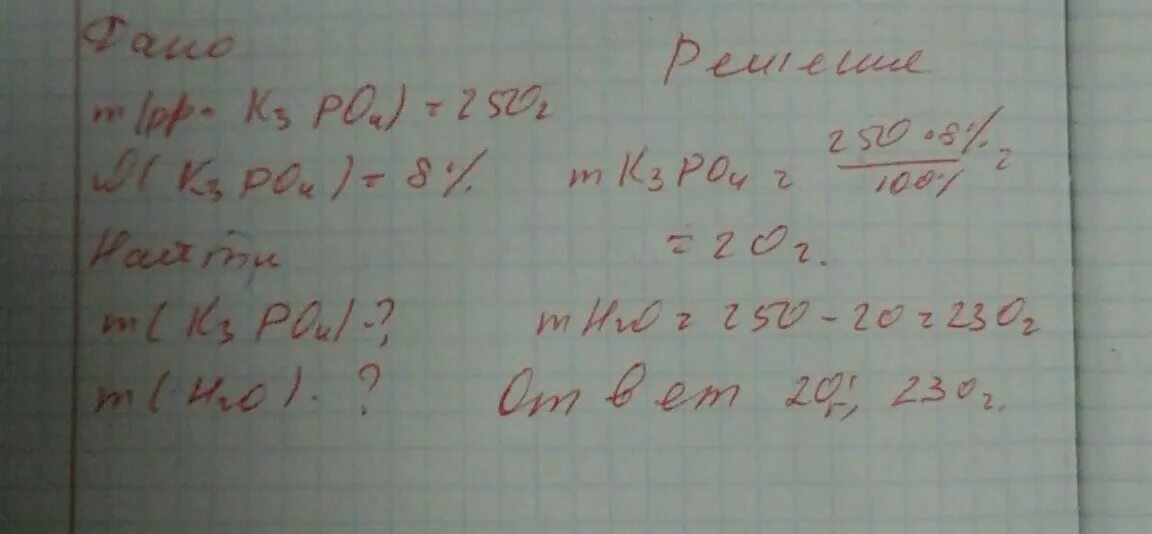 Дано
m(рр- K₃PO₄) = 250г
ω(K₃PO₄) = 8%
Найти
m(K₃PO₄)-?
m(H₂O)-?
Решение
mK₃PO₄ = 250·8%/100% =
= 20г.
mH₂O = 250-20=230г
Ответ 20г; 230г.